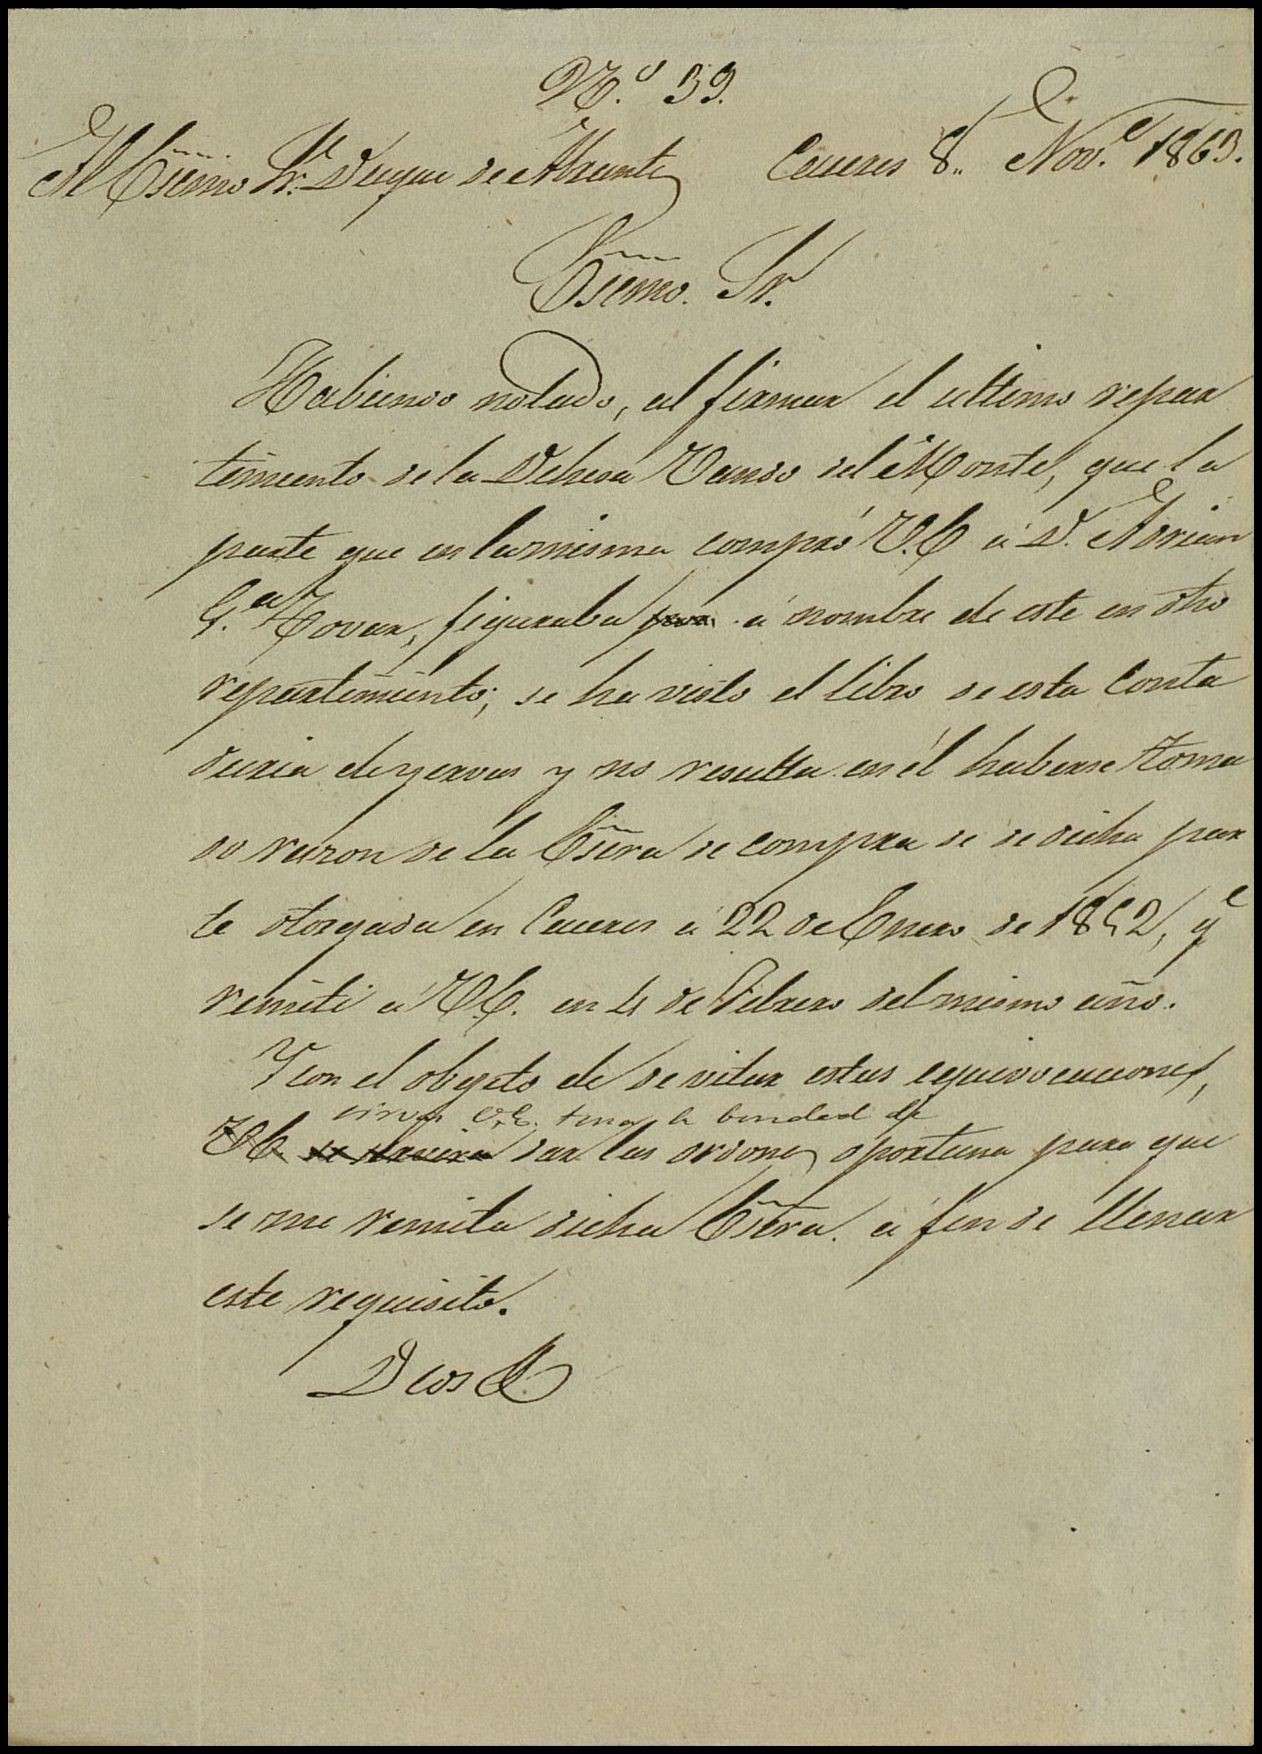 N.º 39.
Al Excmo Sr. Duque de Abrantes Caceres 8.. Nov.e 1863.
Excmo. Sr.
Habiendo notado, al firmar el ultimo repar
timiento de la Dehesa Rando del Monte, que la
parte que en la misma compró V.E á D. Adrian
G.a Tovar, figuraba á nombre de este en dho
repartimiento; se ha visto el libro de esta Conta
duria de yervas y no resulta en él haberse toma
do razon de la Escra de compra de de dicha par
te otorgada en Caceres á 22 de Enero de 1852, q.e
remiti á V.E. en 4 de Febrero del mismo año.
Y con el objeto de de vitar estas equivocaciones,
V.E. tenga la bondad de
VE se servira dar las ordenes oportuna para que
se me remita dicha Escra. á fin de llenar
este requisito.
Dios &